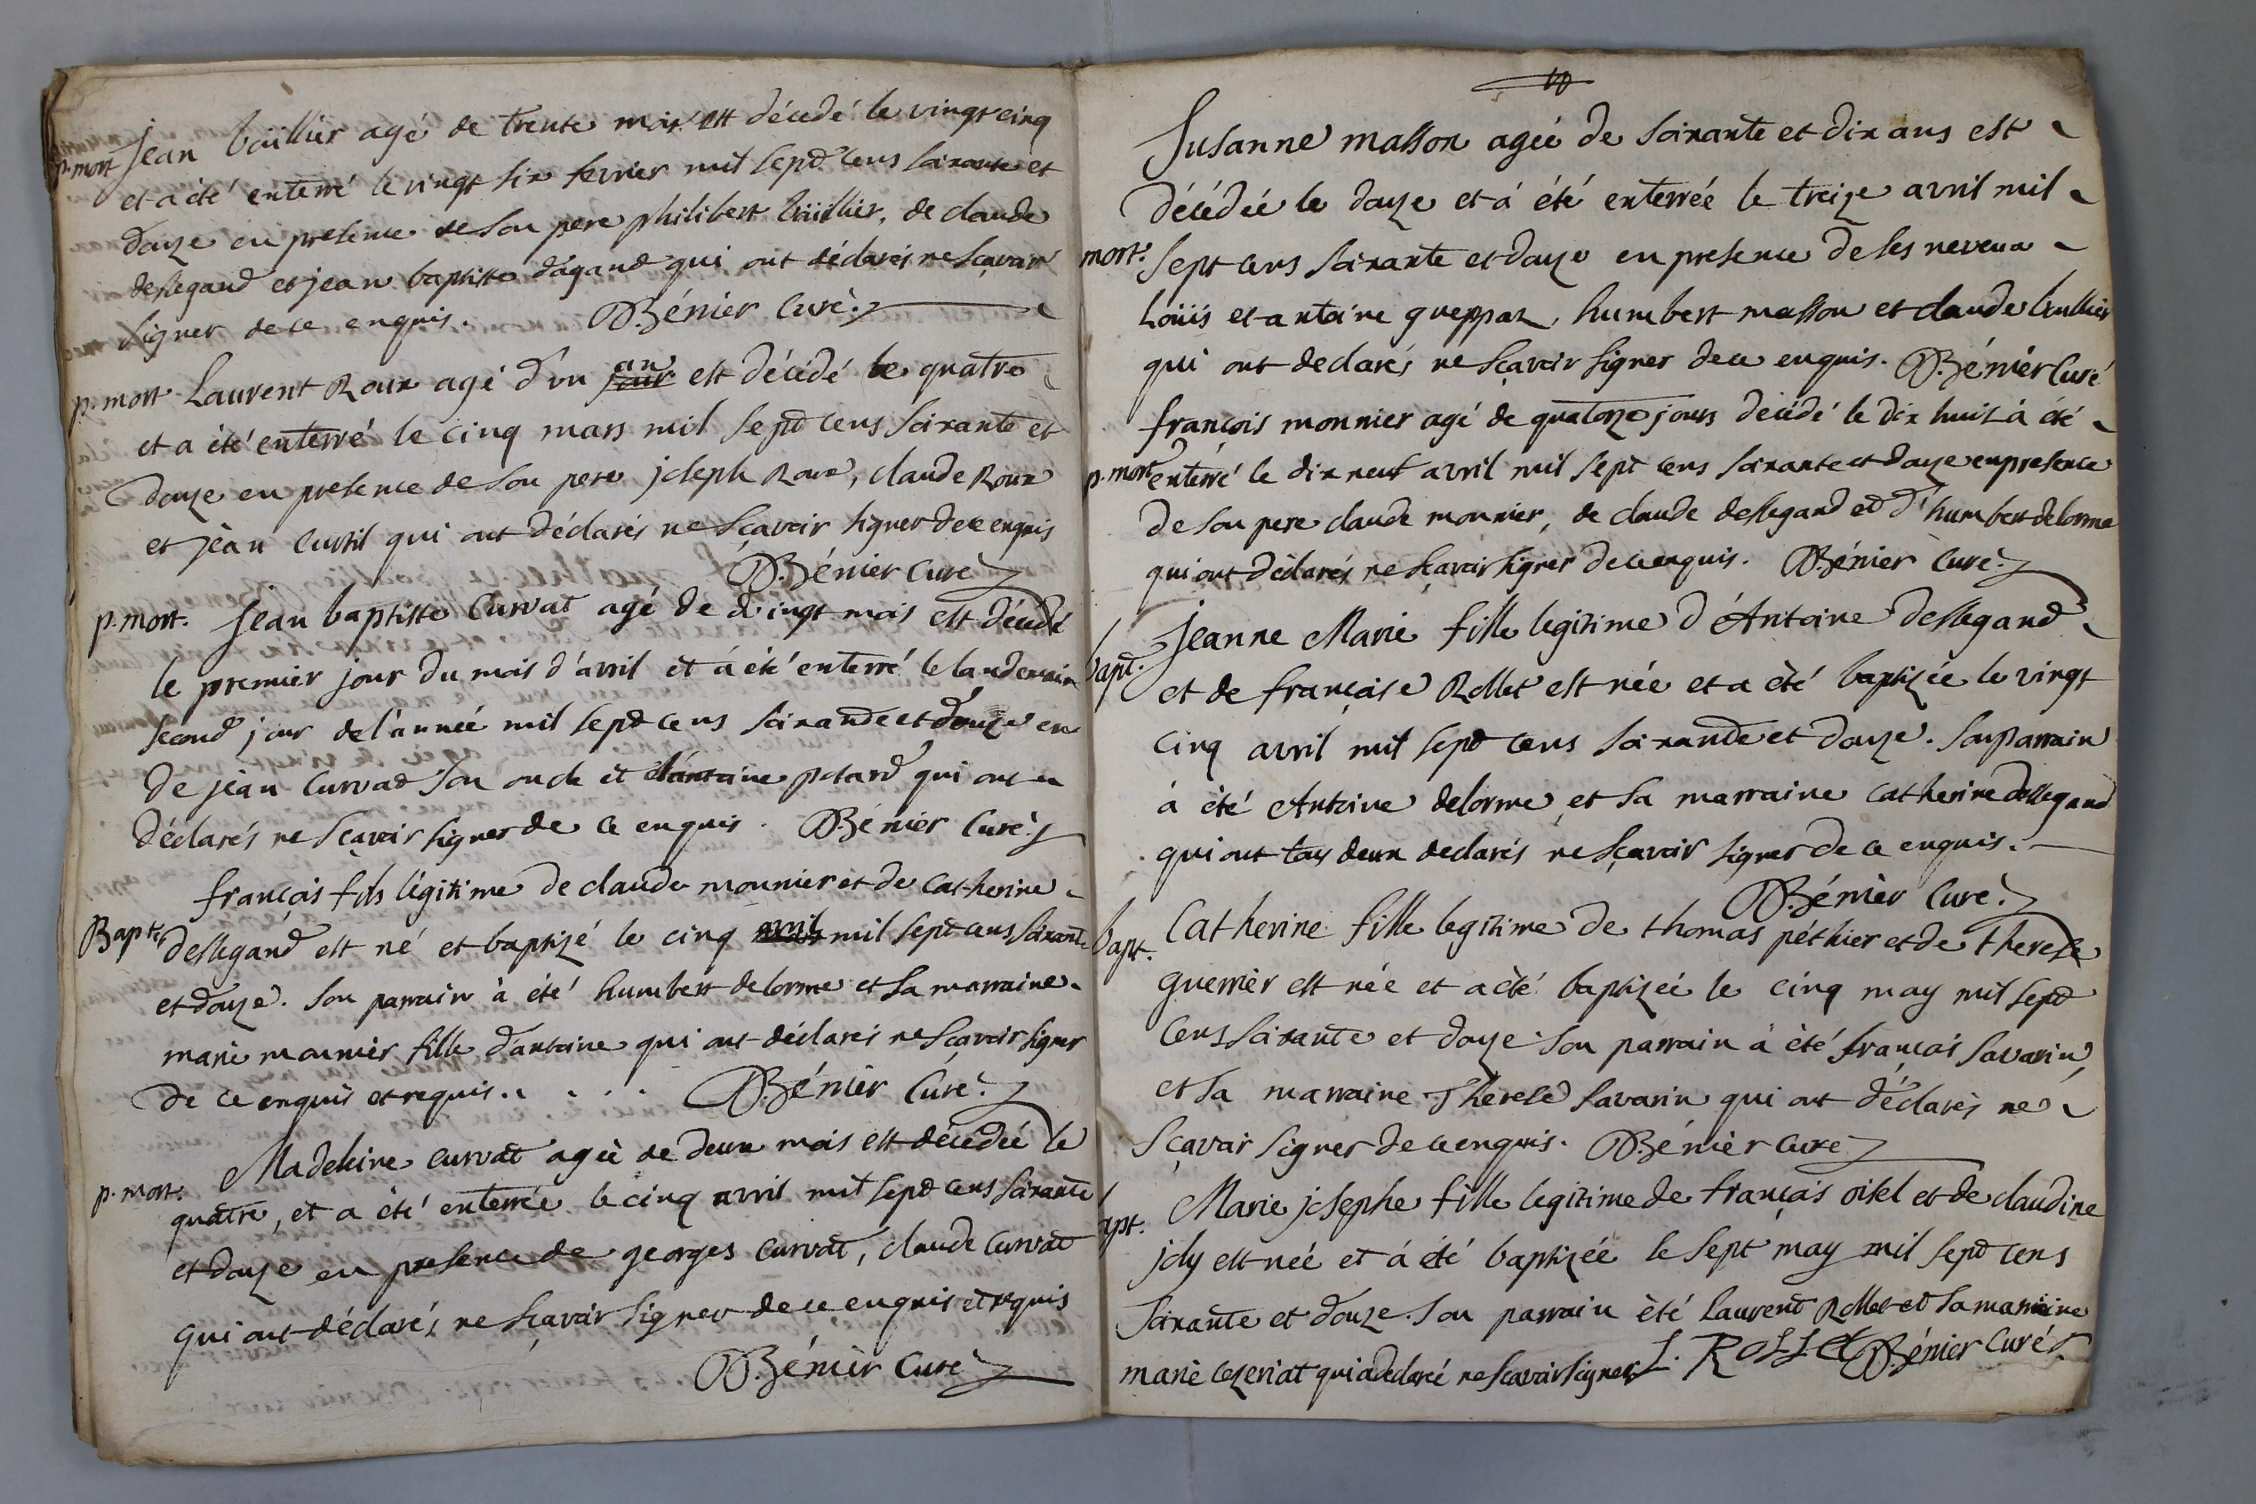 p. mort Jean boüillier agé de trente mois est décedé le vingt cinq
et a été enterré le vingt six fevrier mil sept cens soixante et
douze en presence de son pere philibert boüillier, de claude
deslegand et jean baptiste dagand qui ont déclarés ne sçavoir
signer de ce enquis. Bénier Curé.
p. mort. Laurent Roux agé d'un an est décédé le quatre
et a été enterré le cinq mars mil sept cens soixante et
douze en presence de son pere joseph Roux, claude Roux
et jean curtil qui ont déclarés ne sçavoir signer de ce enquis
Bénier Curé
p. mort. Jean baptiste Curvat agé de vingt mois est décédé
le premier jour du mois d'avril et à été enterré le landemain
second jour de l'année mil sept cens soixante et douze en
de jean Curvat son oncle et d'antoine potard qui ont
déclarés ne sçavoir signer de ce enquis. Bénier Curé.
françois fils légitime de claude monnier et de catherine
Bapt. deslegand est né et baptizé le cinq avril mil sept cens soixante
et douze. son parrain à été humbert delorme et sa marraine
marie monnier fille d'antoine qui ont déclarés ne sçavoir signer
de ce enquis et requis. . . . Bénier Curé.
Madeleine curvat agée de deux mois est décédée le
p. mort. quatre, et a été enterrée le cinq avril mil sept cens soixante
et douze en presence de georges Curvat, claude Curvat
qui ont déclarés ne sçavoir signer de ce enquis et requis
Bénier Curé
Susanne masson agée de soixante et dix ans est
décédée le douze et à été enterrée le treize avril mil
mort. sept cens soixante et douze en presence de ses neveux
Loüis et antoine greppaz, humbert masson et claude boullier
qui ont declarés ne sçavoir signer de ce enquis. Bénier Curé
françois monnier agé de quatorze jours décédé le dix huit à été
p. mort enterré le dix neuf avril mil sept cens soixante et douze en presence
de son pere claude monnier, de claude deslegand et d'humbert delorme
qui ont déclarés ne sçavoir signer de ce enquis. Bénier Curé.
Jeanne Marie fille legitime d'Antoine deslegand
bapt. et de françoise Rollet est née et a été baptizée le vingt
cinq avril mil sept cens soixante et douze. son parrain
à été Antoine delorme, et sa marraine catherine dellegand
qui ont tous deux declarés ne sçavoir signer de ce enquis.
Bénier Curé.
bapt. Catherine fille legitime de thomas péthier et de therese
guerrier est née et a été baptizée le cinq may mil sept
cens soixante et douze son parrain à été françois savarin,
et sa marraine Therese savarin qui ont déclarés ne
sçavoir signer de ce enquis. Bénier Curé
Marie josephe fille legitime de françois oisel et de claudine
apt. joly est née et à été baptizée le sept may mil sept cens
soixante et douze. son parrain été laurent Rollet et sa marraine
marie cezeriat qui a declaré ne sçavoir signer L. Rollet Bénier Curé.